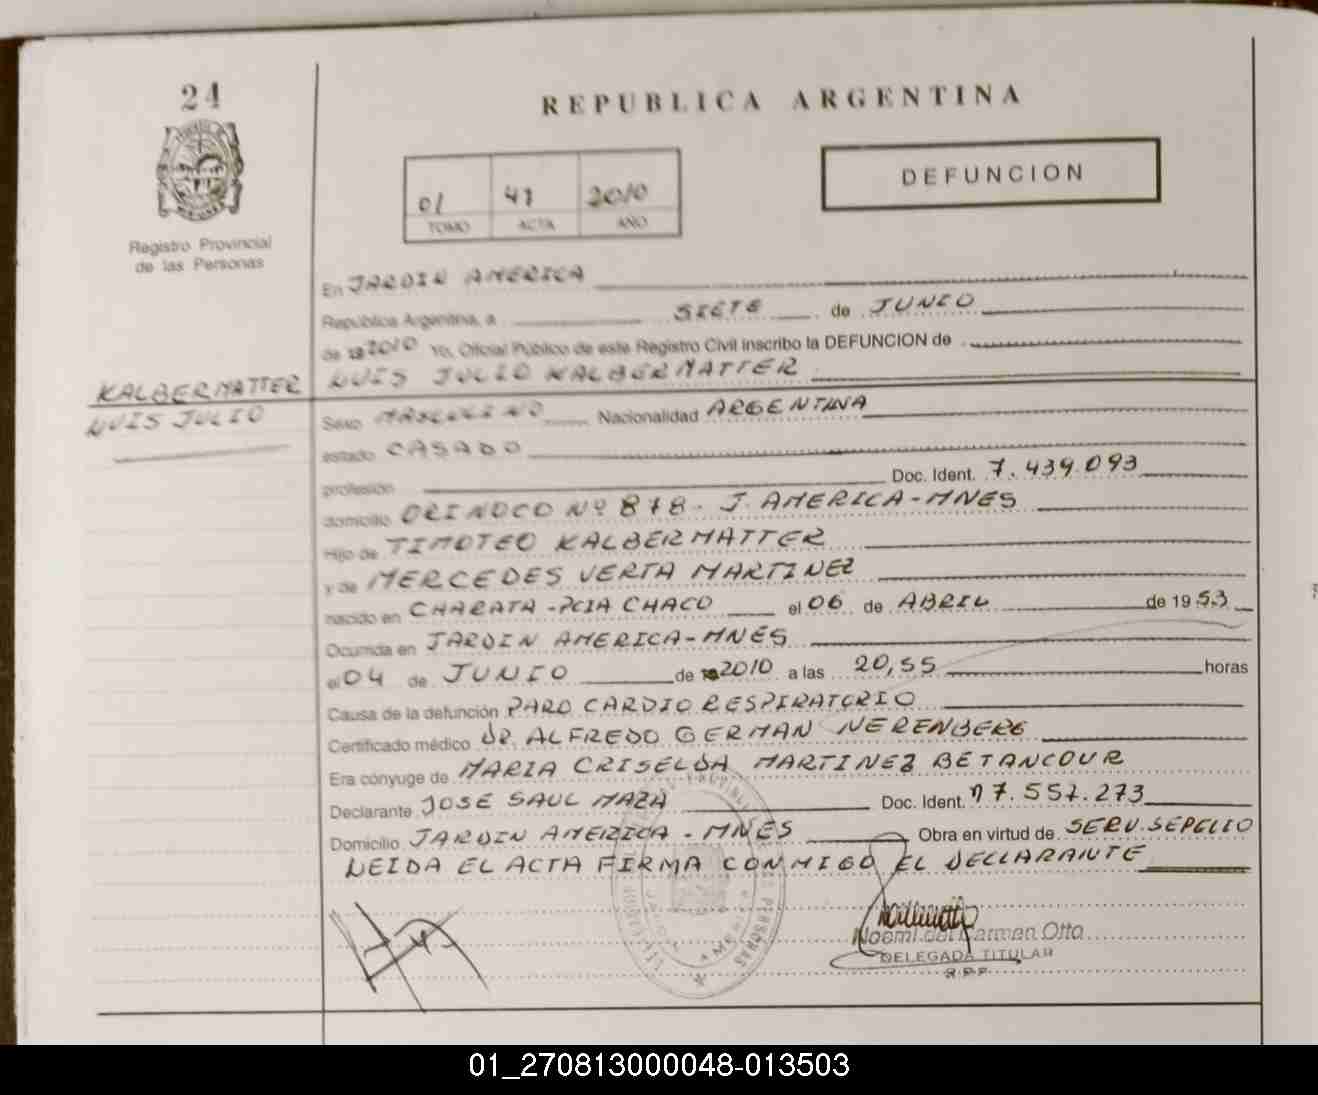 24
REPUBLICA ARGENTINA
DEFUNCION
01 41 2010
TOMO ACTA AÑO
Registro Provincial
de las Personas
En JARDIN AMERICA
República Argentina, a SIETE de JUNIO
de 19 2010 Yo, Oficial Público de este Registro Civil inscribo la DEFUNCION de
KALBERMATTER LUIS JULIO KALBERMATTER
LUIS JULIO
Sexo MASCULINO Nacionalidad ARGENTINA
estado CASADO
profesión Doc. Ident. 7.439.093
domicilio ORINOCO Nº 878 - J. AMERICA-MNES
Hijo de TIMOTEO KALBERMATTER
y de MERCEDES VERTA MARTINEZ
nacido en CHARATA -PCIA CHACO el 06 de ABRIL de 1953
Ocurrida en JARDIN AMERICA-MNES
el 04 de JUNIO de 2010 a las 20,55 horas
Causa de la defunción PARO CARDIO RESPIRATORIO
Certificado médico DR. ALFREDO GERMAN NERENBERG
Era cónyuge de MARIA CRISELDA MARTINEZ BETANCOUR
Declarante JOSE SAUL MAZA Doc. Ident. 17.557.273
Domicilio JARDIN AMERICA - MNES Obra en virtud de SERV. SEPELIO
LEIDA EL ACTA FIRMA CONMIGO EL DECLARANTE
Noemi del Carmen Otto
DELEGADA TITULAR
R.P.P.
01_270813000048-013503